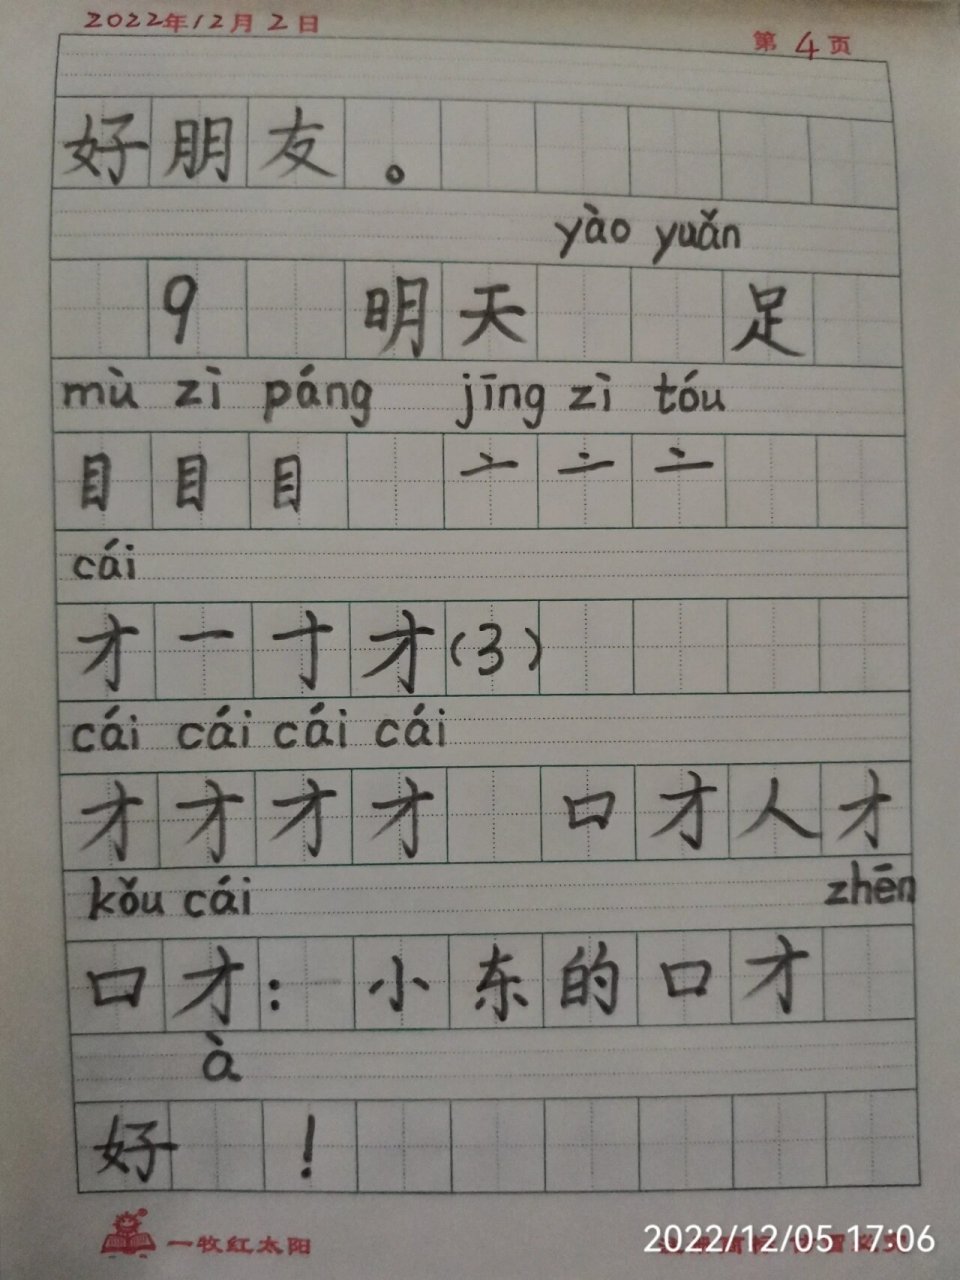 2022年12月2日
第4页
好朋友。
yào yuǎn
9 明天 足
mù zì páng jīng zì tóu
目目目 亠亠亠
cái
才一十才(3)
cái cái cái cái
才才才才 口才人才
kǒu cái zhēn
口才:小东的口才
à
好!
一牧红太阳
2022/12/05 17:06